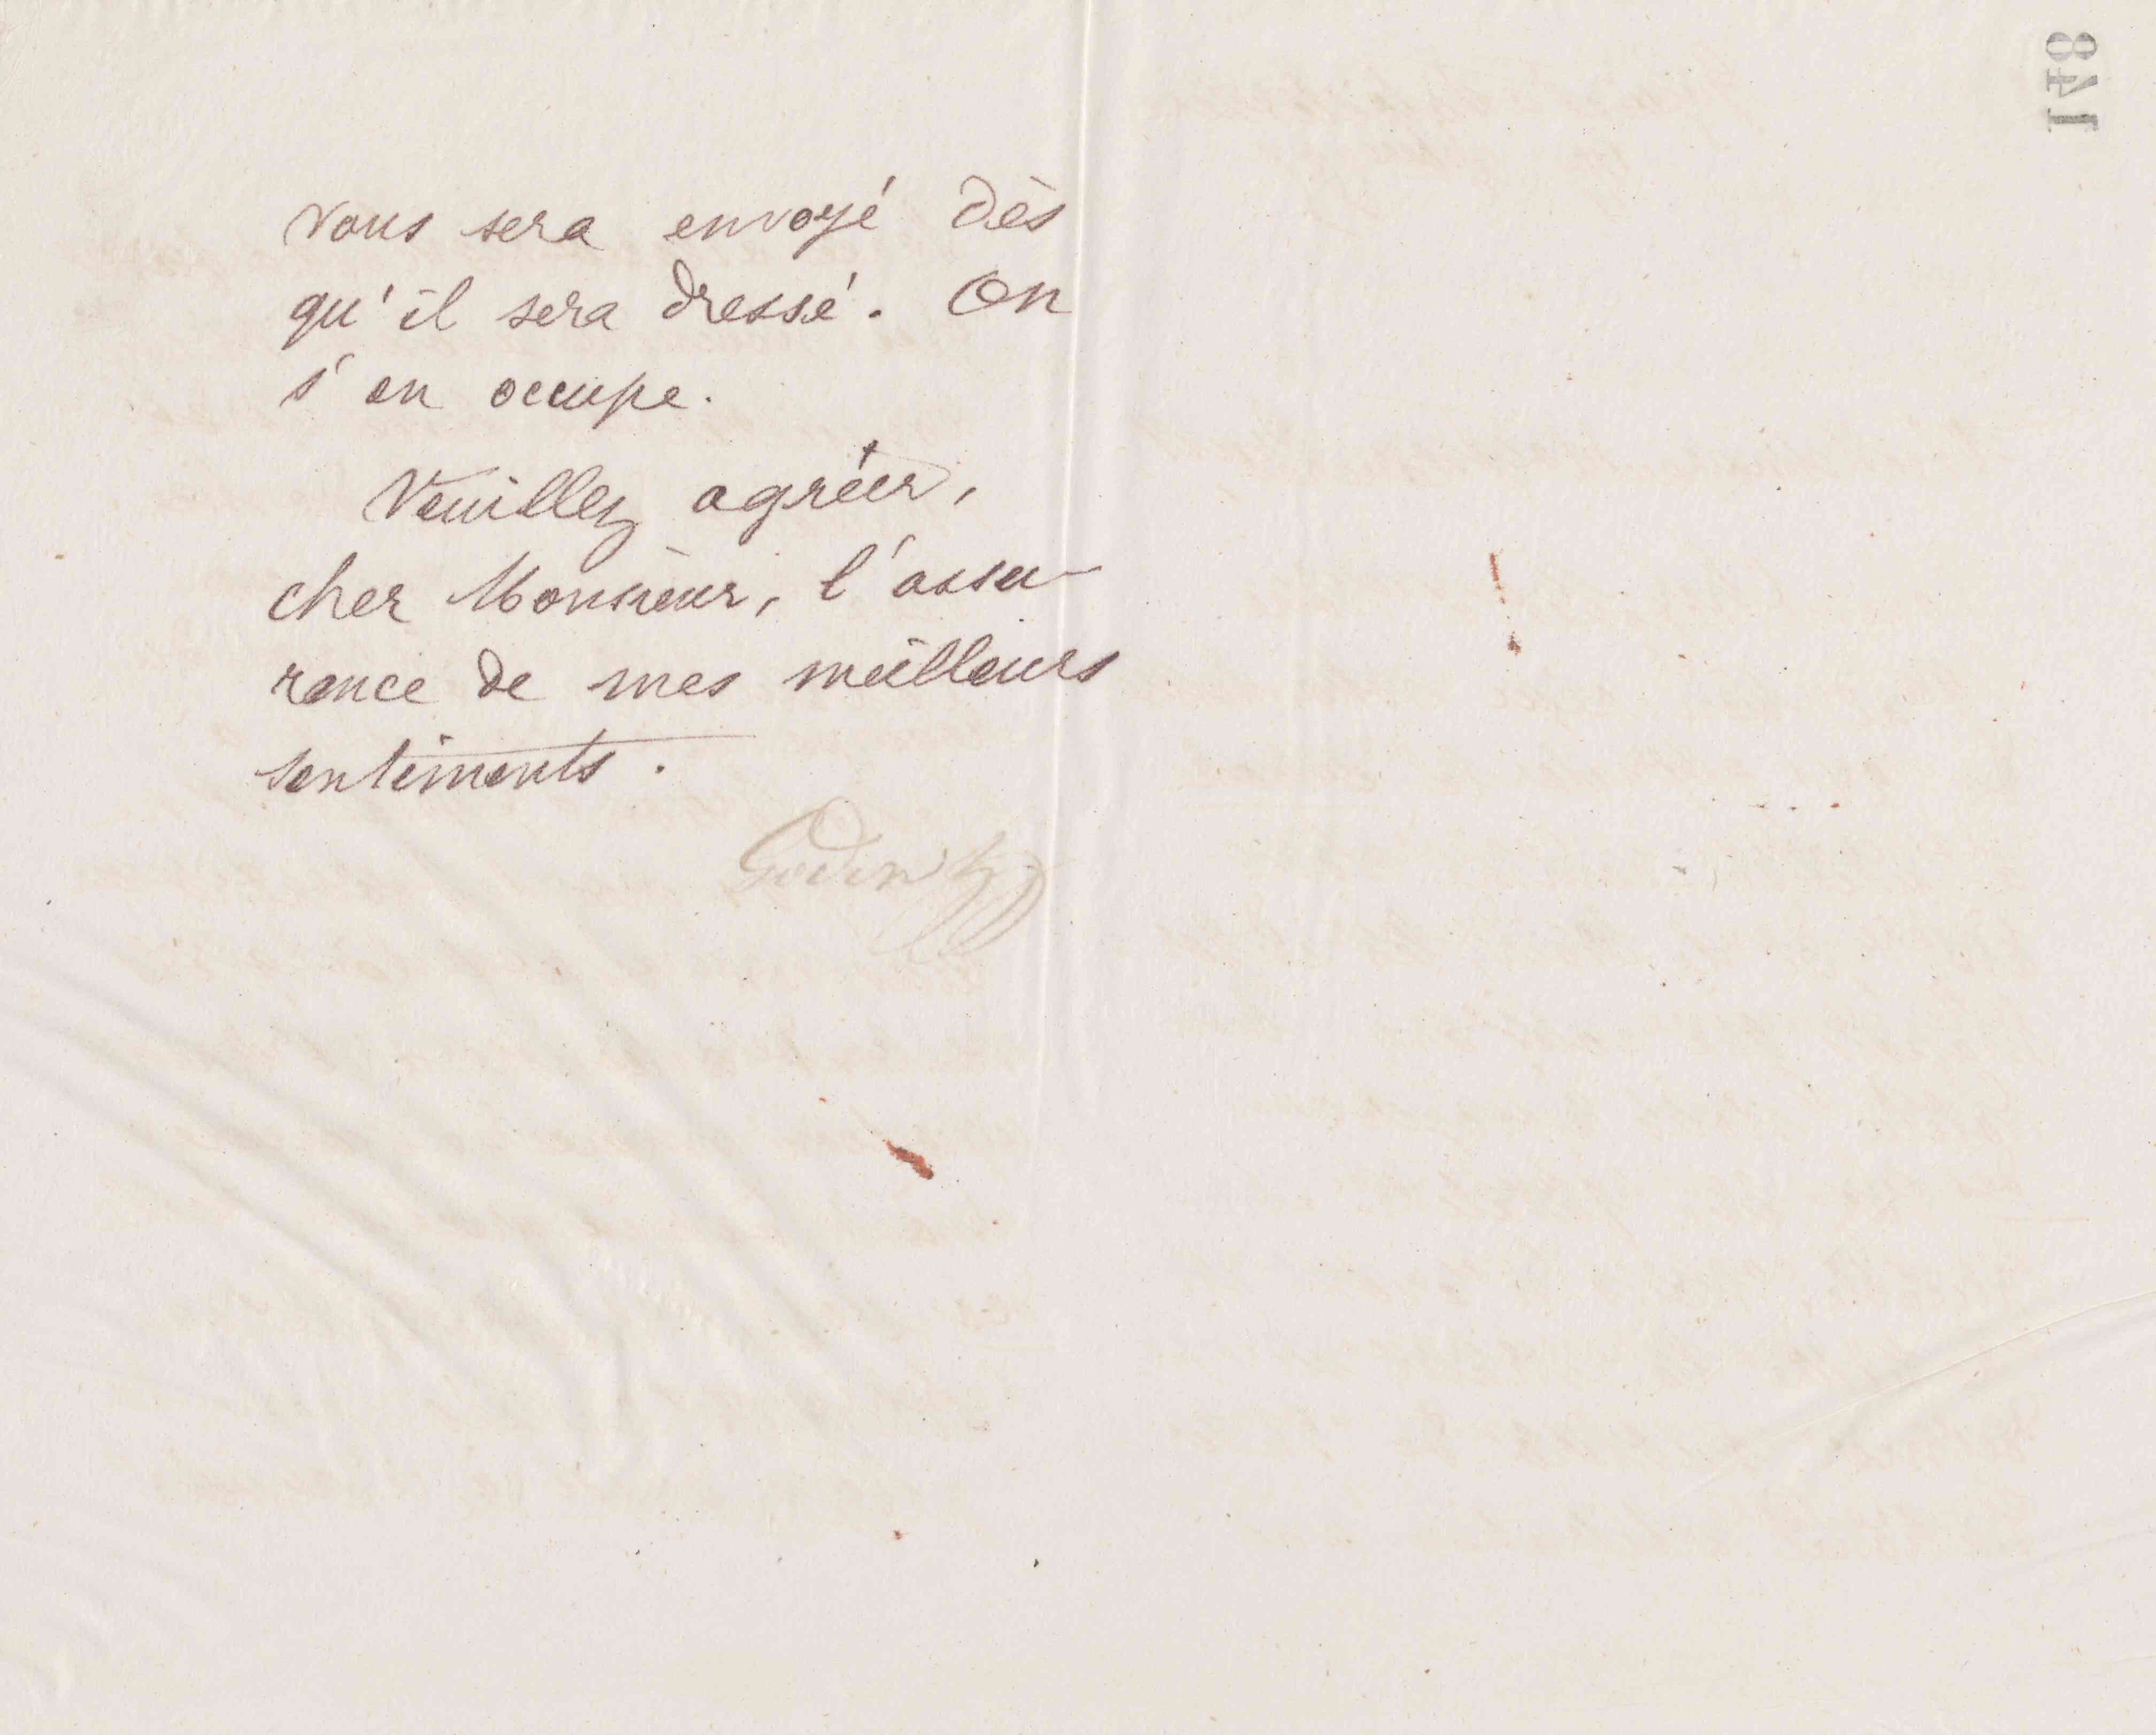 148
vous sera envoyé dès
qu'il sera dressé. On
s'en occupe.
Veuillez agréer,
cher Monsieur, l'assu-
rance de mes meilleurs
sentiments.
Godin